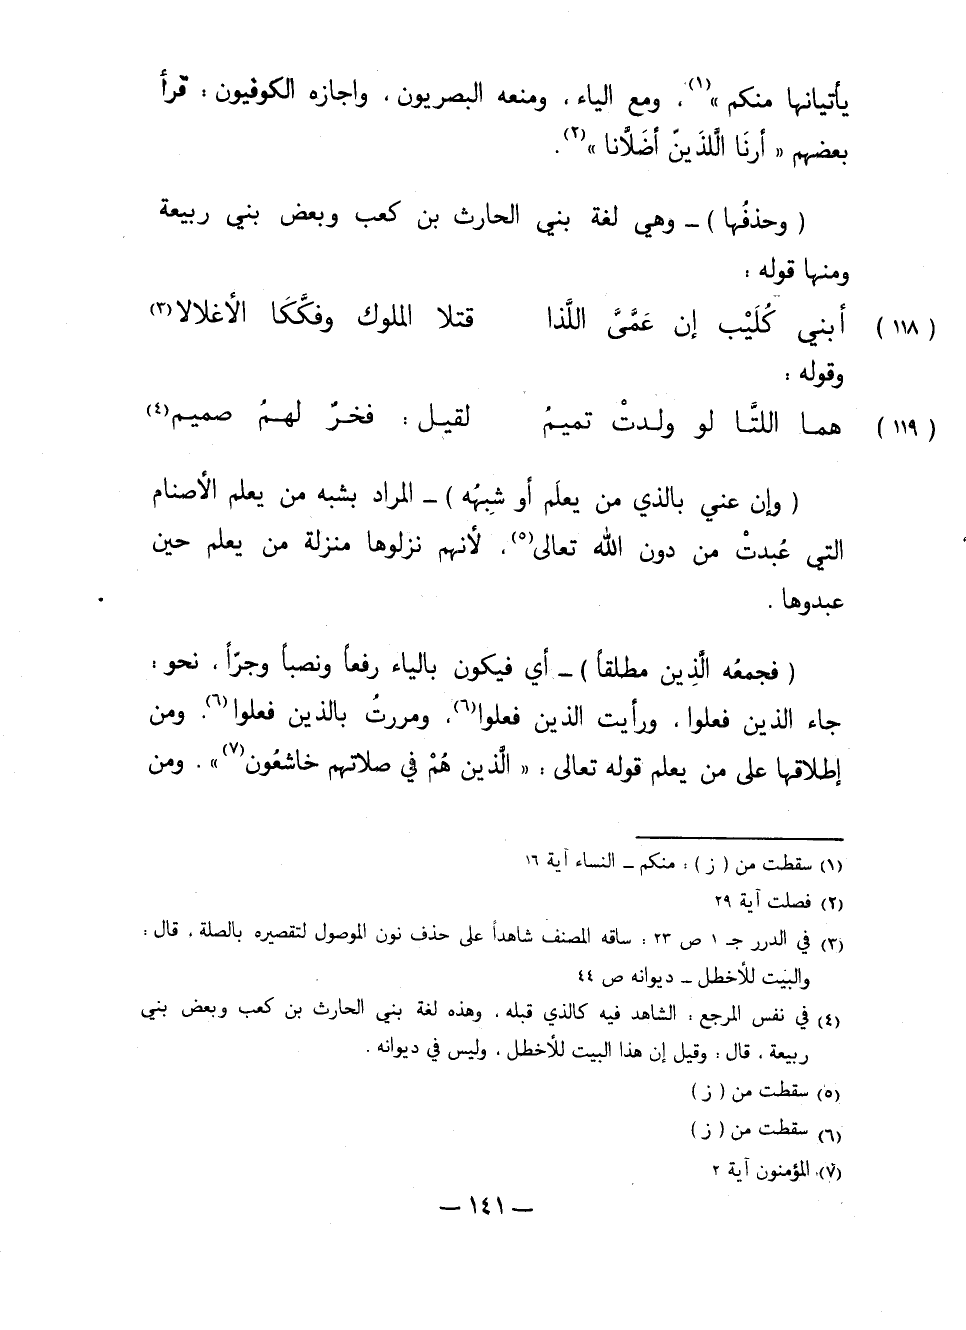 يأتيانها منكم »(١)، ومع الياء، ومنعه البصريون، واجازه الكوفيون: قرأ
بعضهم « أرنَا الَّلذَينّ أضَلَّانا »(٢).
( وحذفُها ) ــ وهي لغة بني الحارث بن كعب وبعض بني ربيعة
ومنها قوله :
( ١١٨ ) أبني كُلَيْب إن عَمَّىَّ اللَّذا قتلا الملوك وفكَّكَا الأغلالا(٣)
وقوله :
( ١١٩ ) همـا اللتَّـا لو ولـدتْ تميمُ لقيـل : فخـرٌ لهـمُ صميم(٤)
( وإن عني بالذي من يعلَم أو شبِهُه ) ــ المراد بشبه من يعلم الأصنام
التي عُبدتْ من دون الله تعالى(٥)، لأنهم نزلوها منزلة من يعلم حين
عبدوها .
( فجمعُه الَّذِين مطلقاً ) ــ أي فيكون بالياء رفعاً ونصباً وجرّاً، نحو :
جاء الذين فعلوا، ورأيت الذين فعلوا(٦)، ومررتُ بالذين فعلوا(٦). ومن
إطلاقها على من يعلم قوله تعالى : « الَّذين هُمْ في صلاتهم خاشعُون(٧)» . ومن
(١) سقطت من ( ز ) : منكم ــ النساء آية ١٦
(٢) فصلت آية ٢٩
(٣) في الدرر جـ ١ ص ٢٣ : ساقه المصنف شاهداً على حذف نون الموصول لتقصيره بالصلة، قال :
والبيت للأخطل ــ ديوانه ص ٤٤
(٤) في نفس المرجع : الشاهد فيه كالذي قبله، وهذه لغة بني الحارث بن كعب وبعض بني
ربيعة، قال : وقيل إن هذا البيت للأخطل، وليس في ديوانه .
(٥) سقطت من ( ز )
(٦) سقطت من ( ز )
(٧) المؤمنون آية ٢
ــ ١٤١ ــ